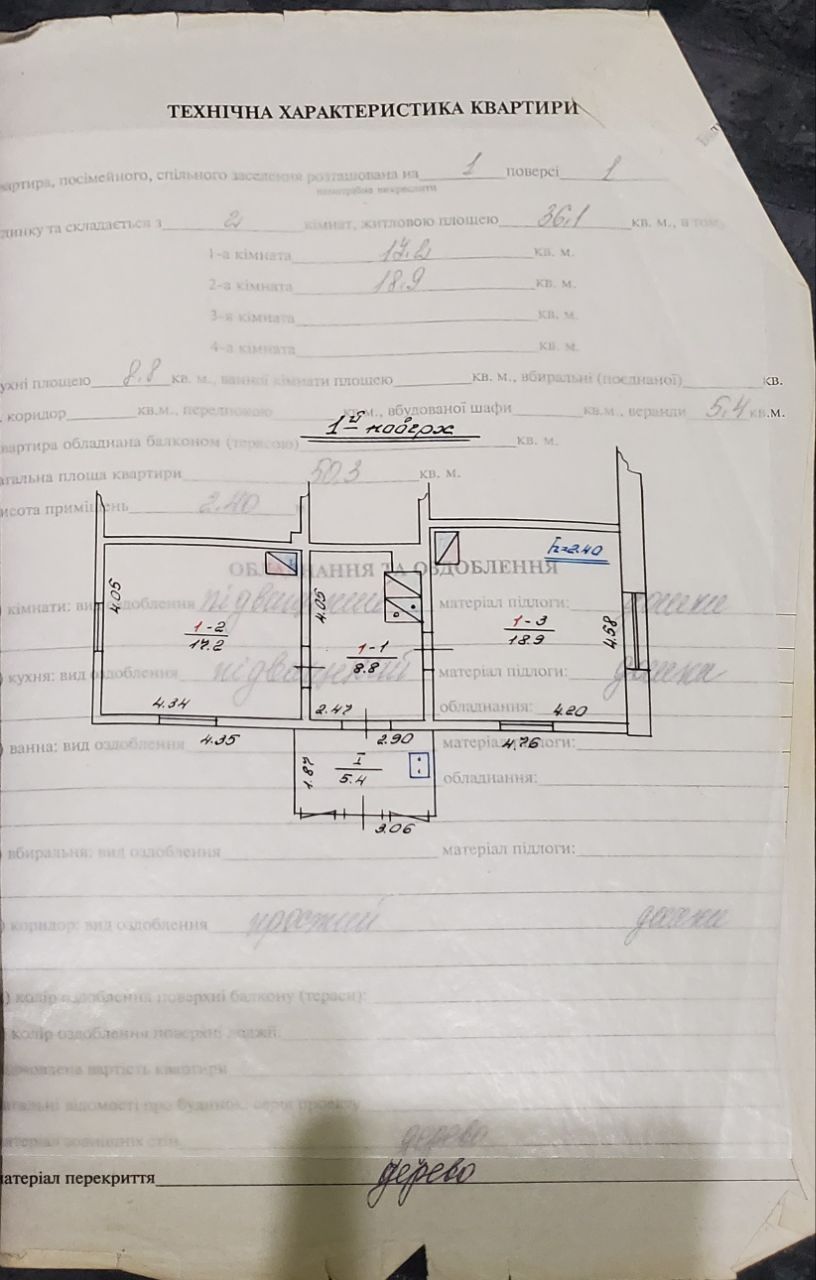 ТЕХНІЧНА ХАРАКТЕРИСТИКА КВАРТИРИ
вартира, посімейного, спільного заселення розташована на 1 поверсі 1
непотрібне викреслити
динку та складається з 2 кімнат, житловою площею 36.1 кв. м., в тому
1-а кімната 17.2 кв. м.
2-а кімната 18.9 кв. м.
3-я кімната кв. м.
4-а кімната кв. м.
ухні площею 8.8 кв. м., ванної кімнати площею кв. м., вбиральні (поєднаної) кв.
коридор кв.м., передпокою кв.м., вбудованої шафи кв.м., веранди 5,4 кв.м.
вартира обладнана балконом (терасою) кв. м.
1й поверх
агальна площа квартири 50.3 кв. м.
исота приміщень 2.40
ОБЛАДНАННЯ ТА ОЗДОБЛЕННЯ
h=2.40
) кімнати: вид оздоблення підвищений матеріал підлоги: дошки
4.05
4.05
4.58
1-2
17.2
1-1
8.8
1-3
18.9
) кухня: вид оздоблення підвищений матеріал підлоги: дошки
обладнання:
4.34
2.47
4.20
4.35
2.90
4.76
) ванна: вид оздоблення матеріал підлоги:
обладнання:
1.87
I
5.4
3.06
) вбиральня: вид оздоблення матеріал підлоги:
) коридор: вид оздоблення простий дошки
) колір оздоблення поверхні балкону (тераси):
) колір оздоблення поверхні лоджії:
дновлена вартість квартири
агальні відомості про будинок: серія проекту
атеріал зовнішніх стін дерево
атеріал перекриття дерево